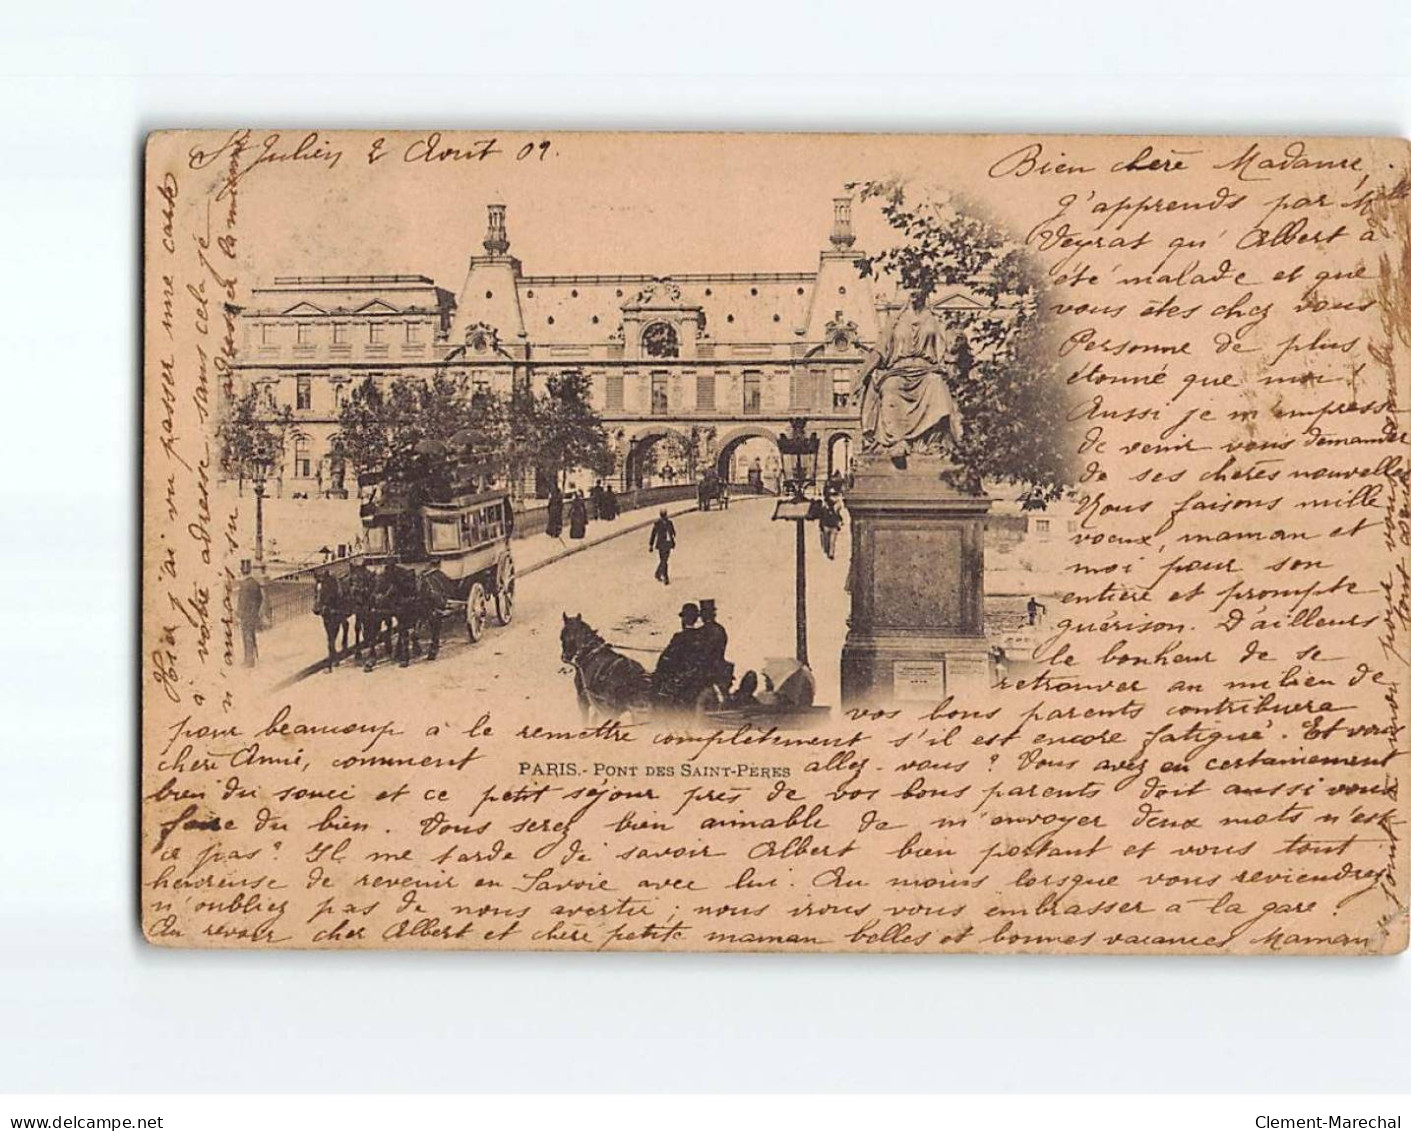 St Julien 2 Août 01.
Bien chère Madame,
J'apprends par Mlle
Veyrat qu'Albert a
été malade et que
vous êtes chez vous
Personne de plus
étonné que moi!
Aussi je m'empresse
de venir vous demander
de ses chères nouvelles
Nous faisons mille
voeux, maman et
moi pour son
entière et prompte
guérison. D'ailleurs
le bonheur de se
retrouver au milieu de
vos bons parents contribuera
pour beaucoup à le remettre complètement s'il est encore fatigué. Et vous
chère Amie, comment allez-vous? Vous avez eu certainement
PARIS.- PONT DES SAINT-PÈRES
bien du souci et ce petit séjour près de vos bons parents doit aussi vous
faire du bien. Vous serez bien aimable de m'envoyer deux mots n'est
ce pas? Il me tarde de savoir Albert bien portant et vous tout
heureuse de revenir en Savoie avec lui. Au moins lorsque vous reviendrez
n'oubliez pas de nous avertir; nous irons vous embrasser à la gare!
Au revoir cher Albert et chère petite maman belles et bonnes vacances Maman
se joint à moi pour vous embrasser
tout
Hier j'ai vu passer une carte
à votre adresse sans cela je
n'aurais su adresser la mienne
delcampe.net
Clement-Marechal